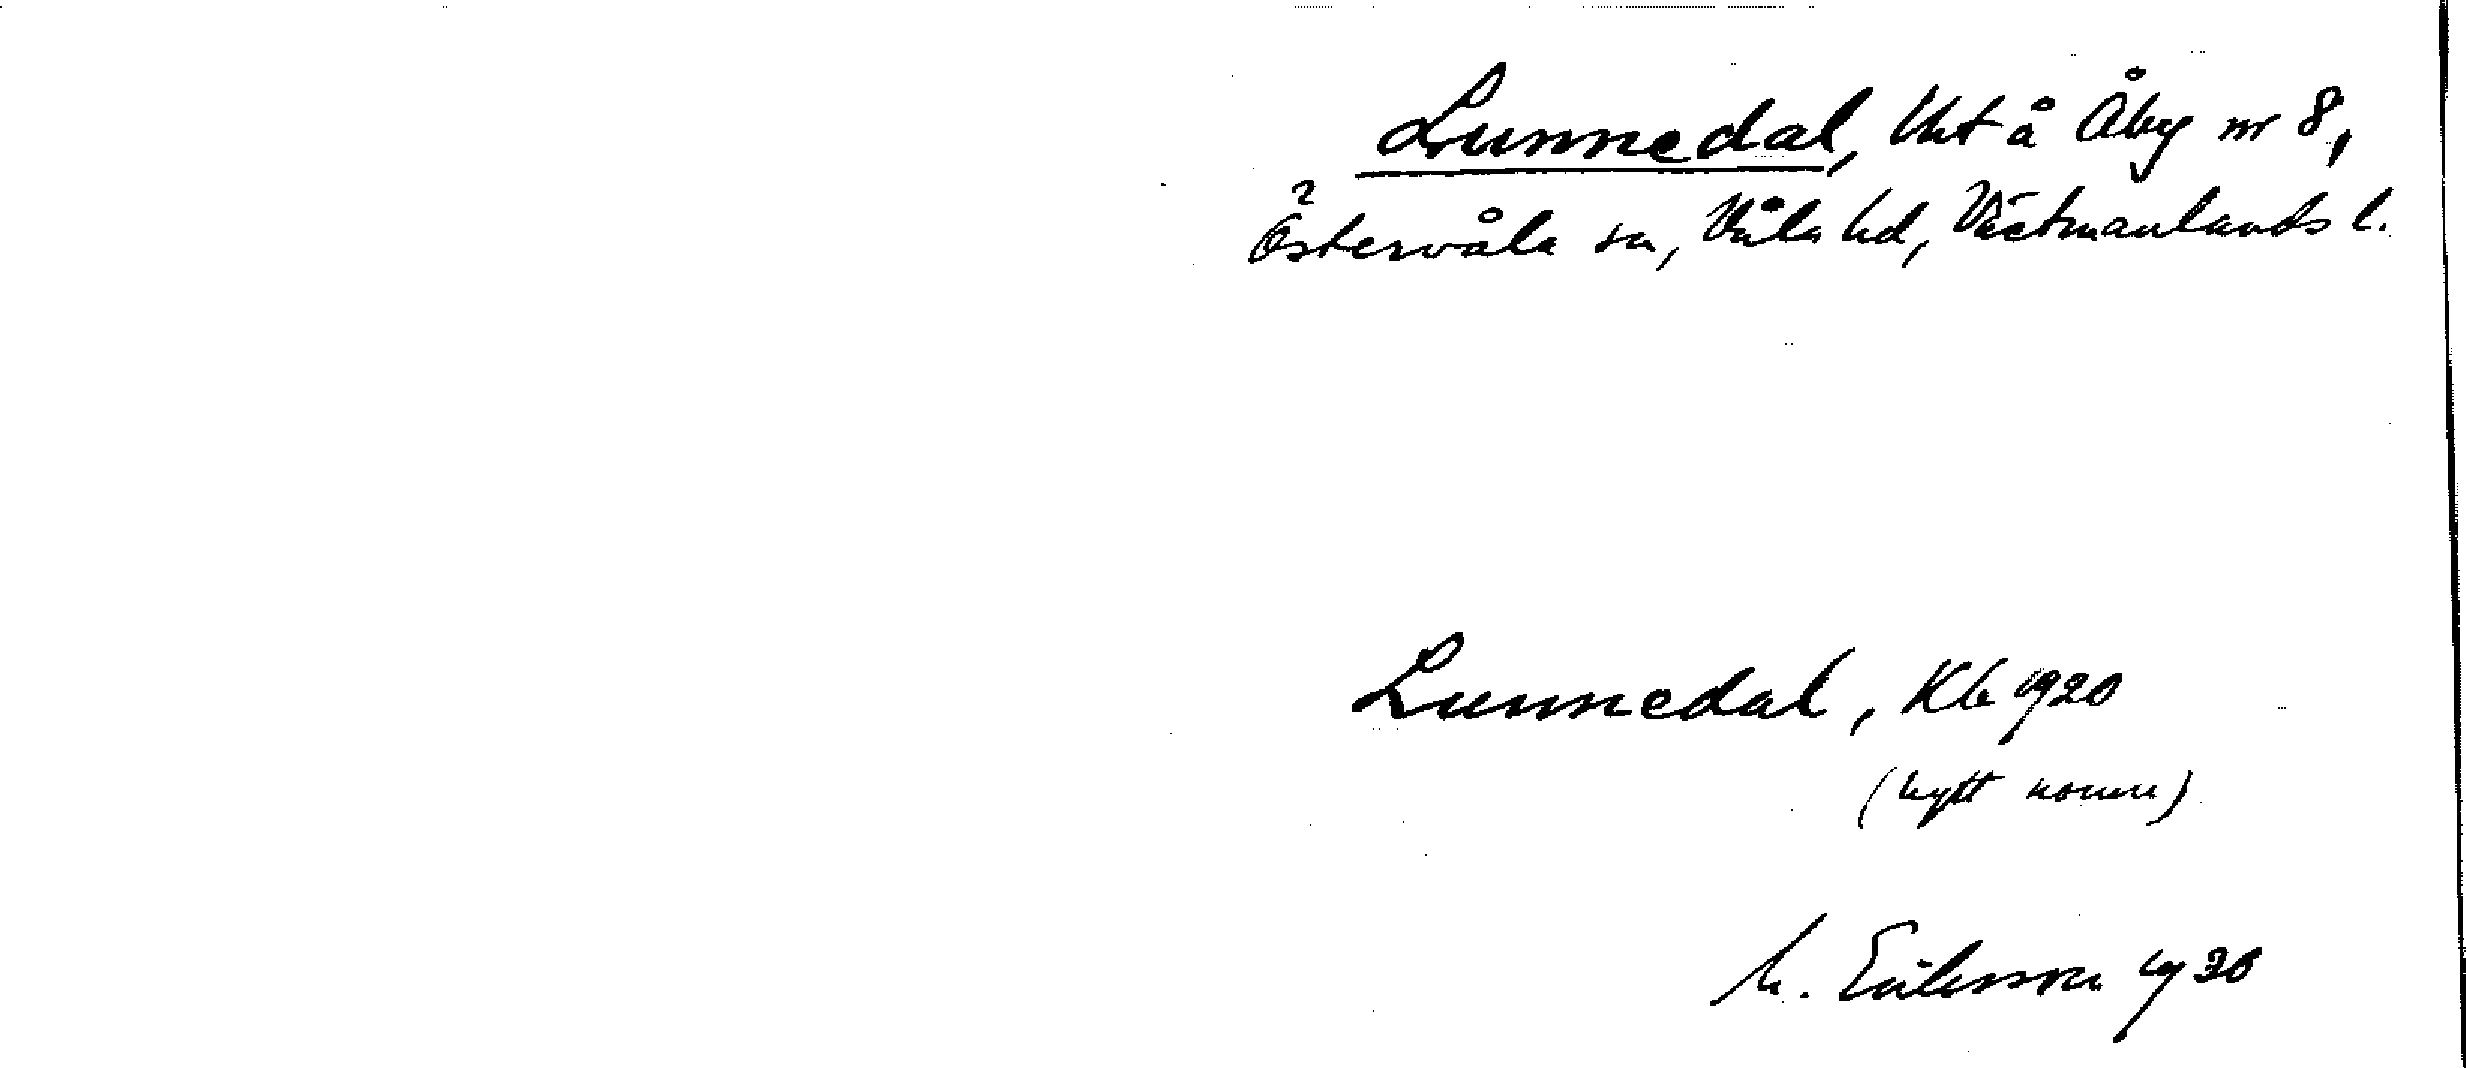 Lunnedal, lht å Åby nr 8,
Östervåla sn, Våla hd, Västmanlands l.
Lunnedal, Kb 1920
(nytt namn)
M. Eriksson 1930